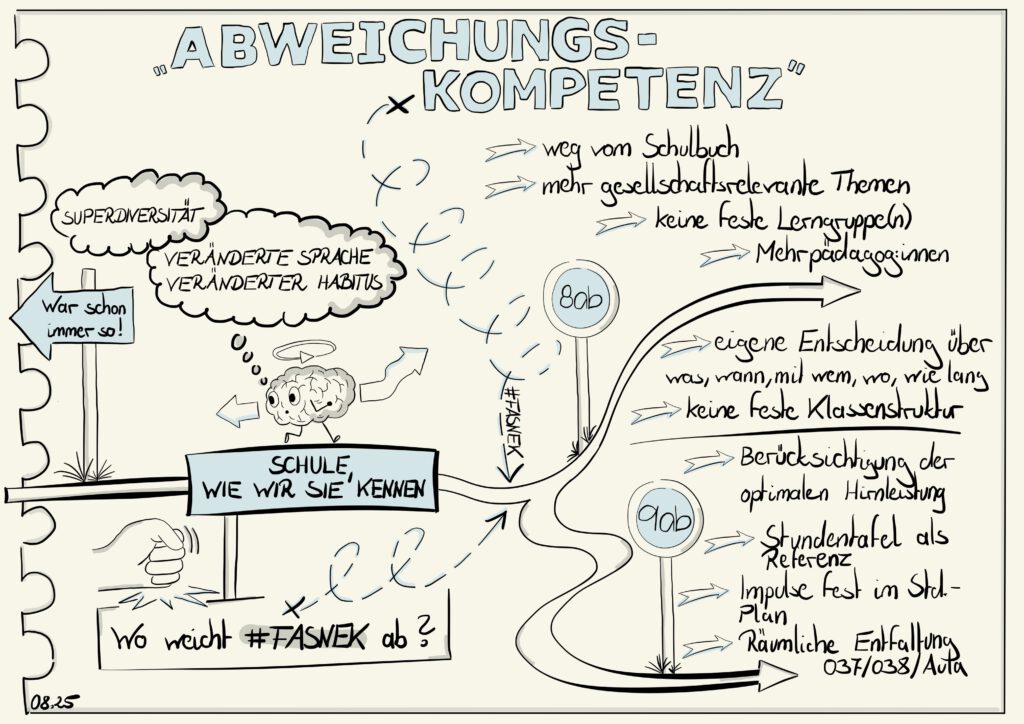 „ABWEICHUNGS-
KOMPETENZ"
weg vom Schulbuch
mehr gesellschaftsrelevante Themen
keine feste Lerngruppe(n)
Mehrpädagog:innen
SUPERDIVERSITÄT
VERÄNDERTE SPRACHE
VERÄNDERTER HABITUS
War schon
immer so!
8ab
eigene Entscheidung über
was, wann, mit wem, wo, wie lang
keine feste Klassenstruktur
#FASNEK
SCHULE,
WIE WIR SIE KENNEN
Berücksichtigung der
optimalen Hirnleistung
9ab
Stundentafel als
Referenz
Impulse fest im Std.-
Plan
Räumliche Entfaltung
037/038/Aula
Wo weicht #FASNEK ab?
08.25